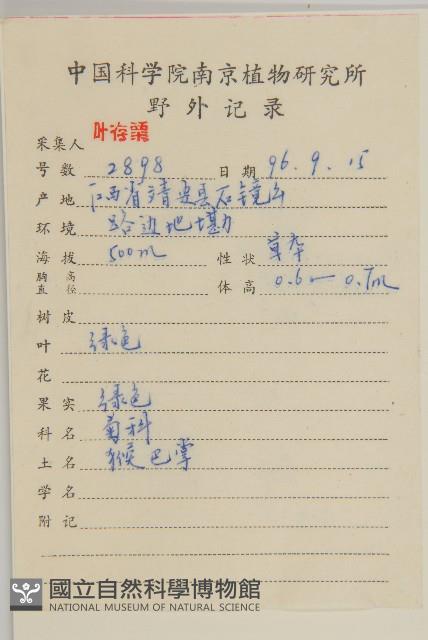 中国科学院南京植物研究所
野外记录
采集人 叶存粟
号数 2898 日期 96.9.15
产地 江西省靖安县石镜山
环境 路边地堪
海拔 500m 性状 草本
胸高直径 体高 0.6—0.7m
树皮
叶 绿色
花
果实 绿色
科名 菊科
土名 猴巴掌
学名
附记
國立自然科學博物館
NATIONAL MUSEUM OF NATURAL SCIENCE